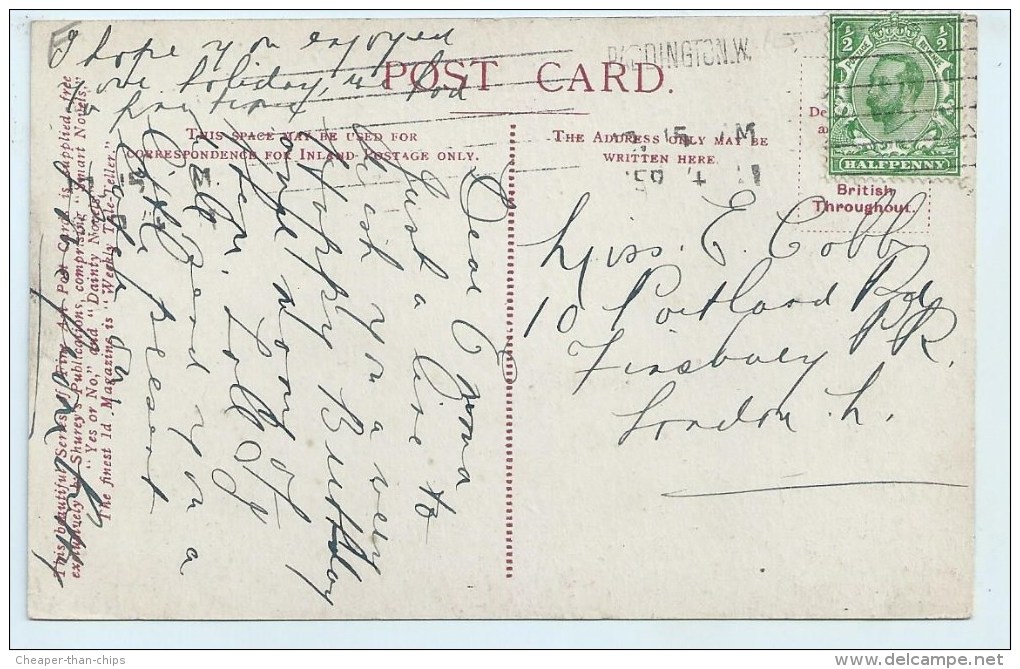 I hope you enjoyed
holiday, we had
POST CARD.
PADDINGTON.W.
THIS SPACE MAY BE USED FOR
CORRESPONDENCE FOR INLAND POSTAGE ONLY.
THE ADDRESS ONLY MAY BE
WRITTEN HERE.
½ POSTAGE REVENUE ½
HALFPENNY
British
Throughout.
Dear
Just a line to
wish you a very
Happy Birthday
and
Will send you a
little present
Miss. E. Cobb
10 Portland Rd
Finsbury PK.
London. N.
This beautiful Series of Fine Art Post Cards is supplied free
exclusively by Shurey's Publications, comprising "Smart Novels,"
"Yes or No," and "Dainty Novels."
The finest 1d. Magazine is "Weekly Tale-Teller."
Cheaper-than-chips
www.delcampe.net